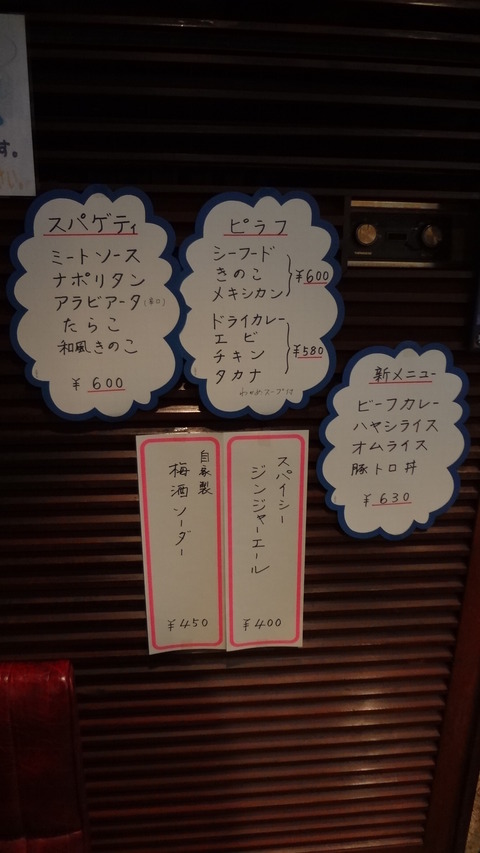 す。
スパゲティ
ミートソース
ナポリタン
アラビアータ(辛口)
たらこ
和風きのこ
¥600
ピラフ
シーフード
きのこ
メキシカン
¥600
ドライカレー
エビ
チキン
タカナ
¥580
わかめスープ付
新メニュー
ビーフカレー
ハヤシライス
オムライス
豚トロ丼
¥630
自家製
梅酒ソーダー
¥450
スパイシー
ジンジャーエール
¥400